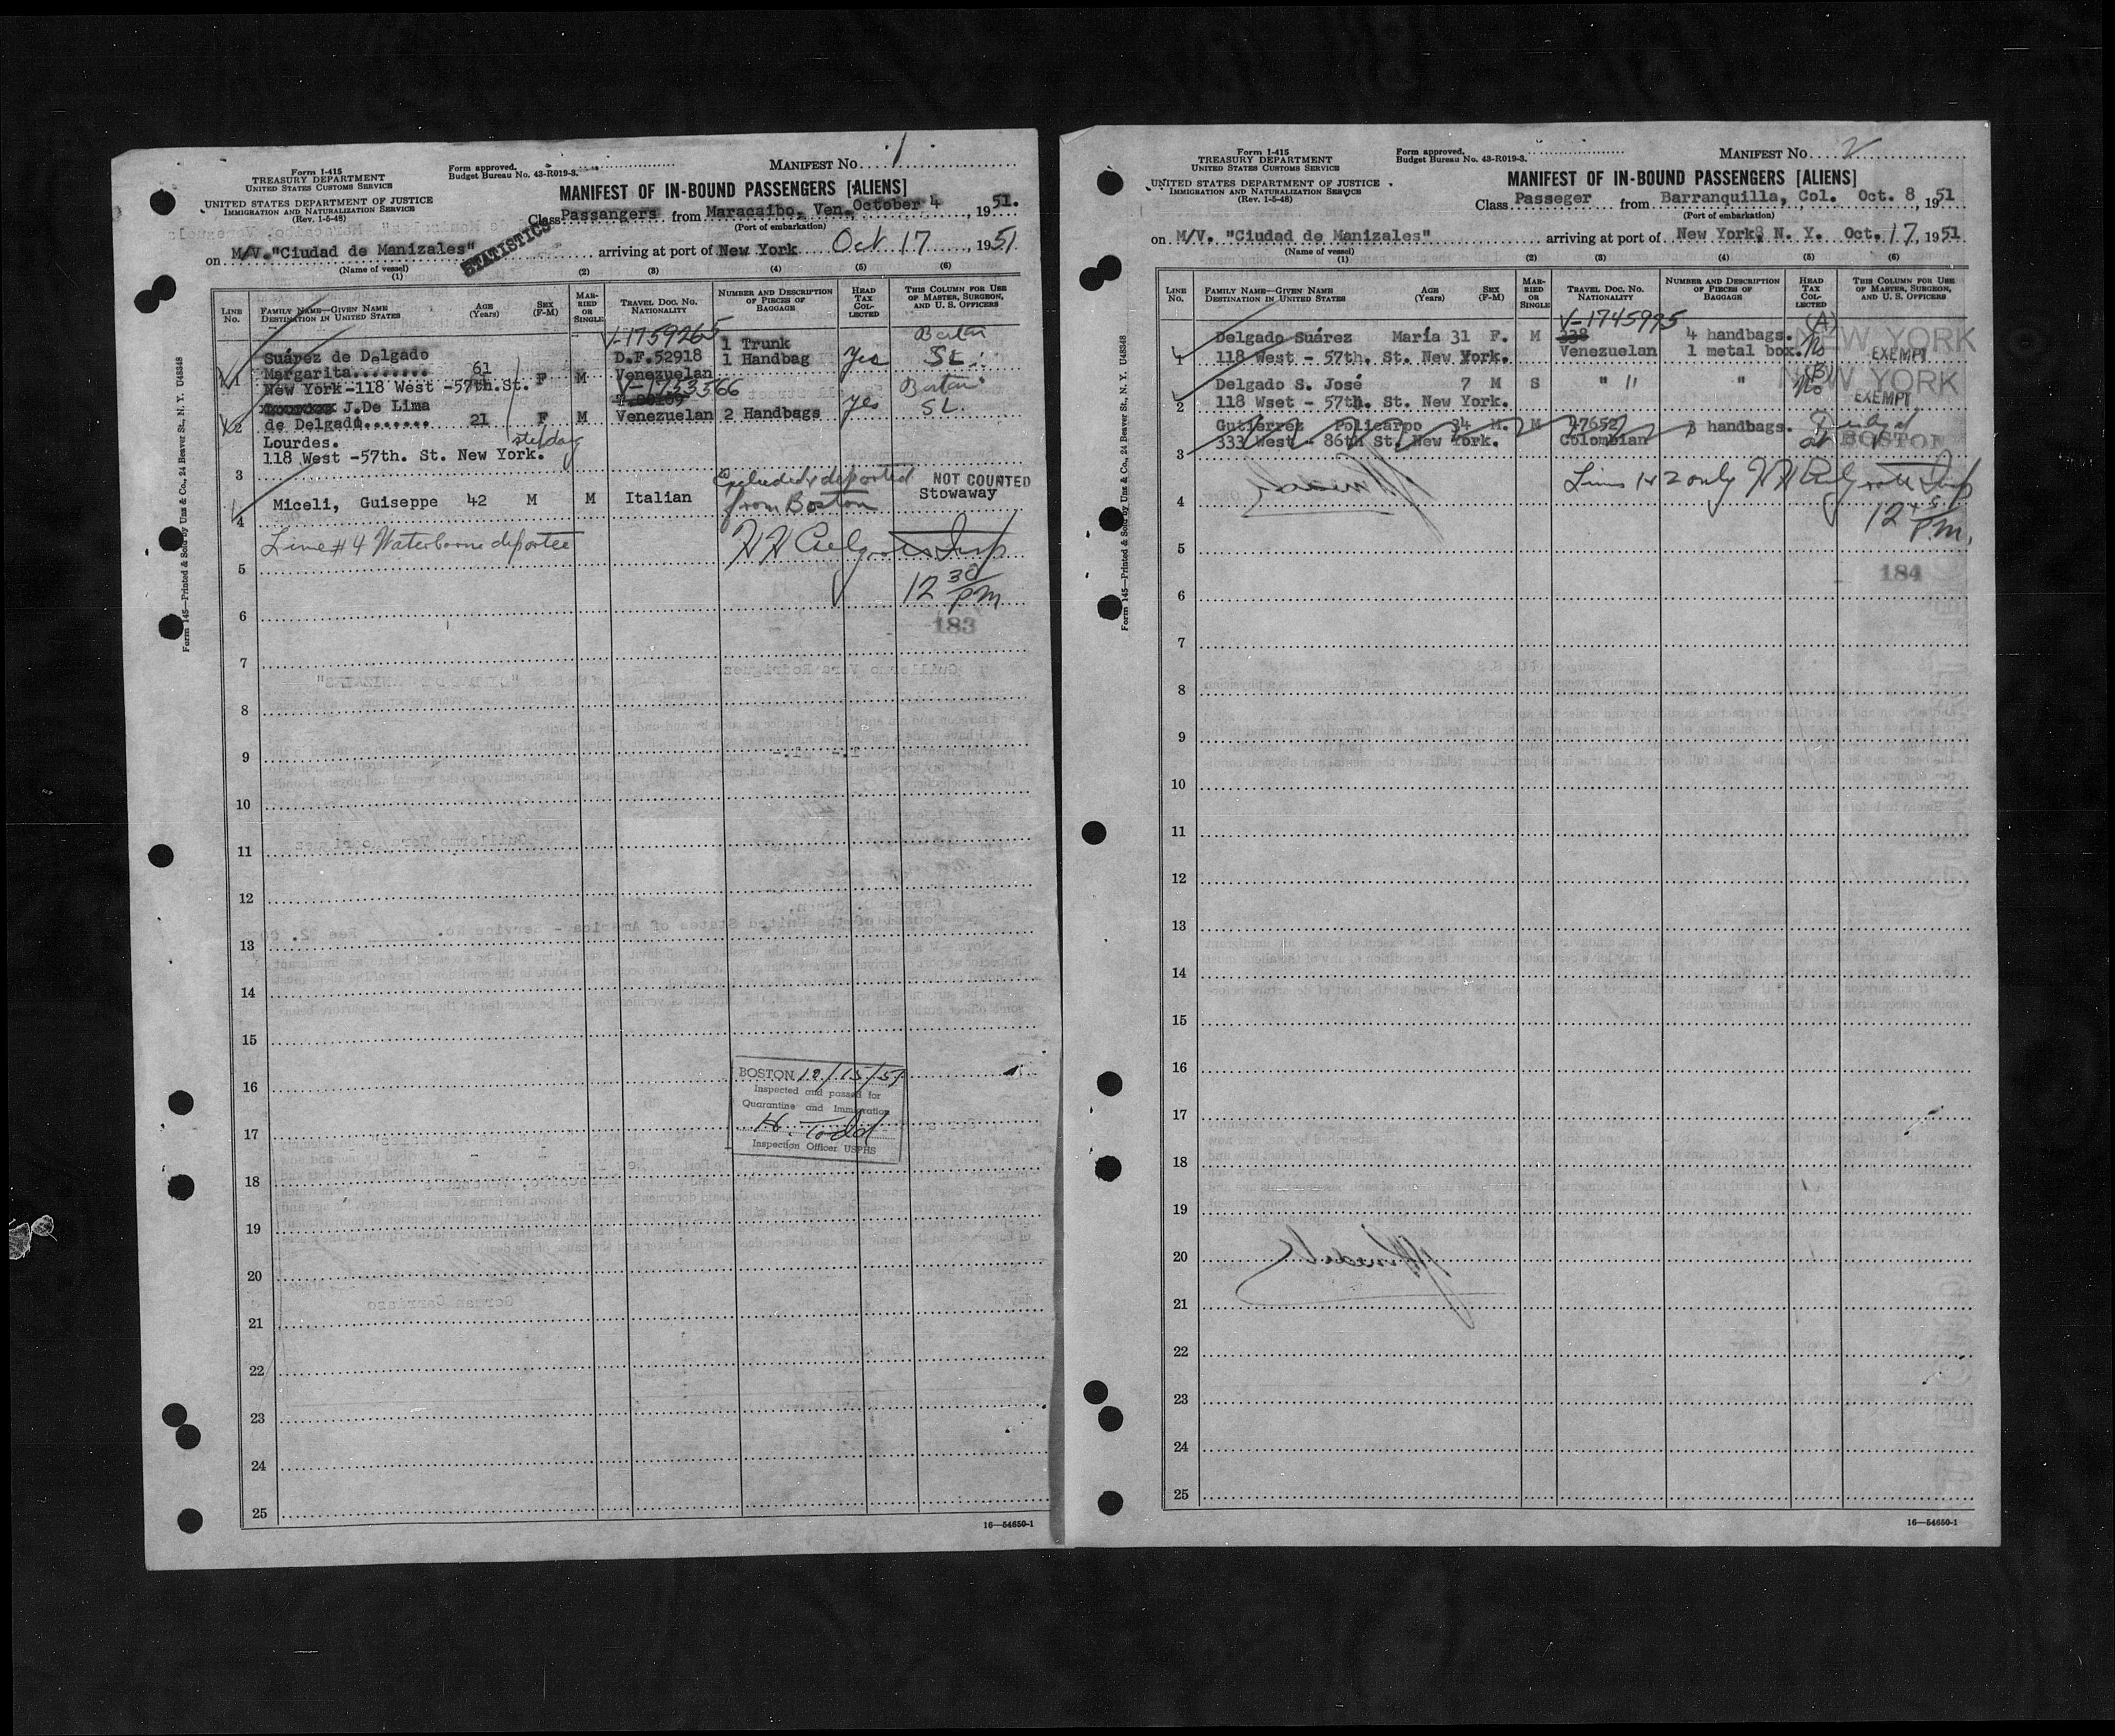 Form I-415
TREASURY DEPARTMENT
UNITED STATES CUSTOMS SERVICE
UNITED STATES DEPARTMENT OF JUSTICE
IMMIGRATION AND NATURALIZATION SERVICE
(Rev. 1-5-48)
Form approved.
Budget Bureau No. 43-R019-3.
MANIFEST NO. 1
MANIFEST OF IN-BOUND PASSENGERS [ALIENS]
Class Passangers from Maracaibo, Ven. October 4, 1951.
(Port of embarkation)
on M/V."Ciudad de Manizales" arriving at port of New York Oct 17, 1951
(Name of vessel)
STATISTICS
(1) (2) (3) (4) (5) (6)
LINE No.
FAMILY NAME—GIVEN NAME
DESTINATION IN UNITED STATES
AGE (Years)
SEX (F-M)
MARRIED OR SINGLE
TRAVEL DOC. NO. NATIONALITY
NUMBER AND DESCRIPTION OF PIECES OF BAGGAGE
HEAD TAX COLLECTED
THIS COLUMN FOR USE OF MASTER, SURGEON, AND U. S. OFFICERS
V-1759265
Suárez de Delgado D.F.52918 1 Trunk
1 Margarita........ 61 F M Venezuelan 1 Handbag Yes SL.
New York-118 West -57th.St.
V-1753566
J.De Lima
2 de Delgado....... 21 F M Venezuelan 2 Handbags Yes SL.
Lourdes.
118 West -57th. St. New York.
3
Excluded & deported from Boston
NOT COUNTED
4 Miceli, Guiseppe 42 M M Italian Stowaway
Line #4 Waterborne deportee
5
12 30 PM
6
183
7
8
9
10
11
12
13
14
15
16
BOSTON 12/15/51
Inspected and passed for
Quarantine and Immigration
H. Todd
Inspection Officer USPHS
17
18
19
20
21
22
23
24
25
16—54650-1
Form 145—Printed & Sold by Unz & Co., 24 Beaver St., N. Y. U48348
Form I-415
TREASURY DEPARTMENT
UNITED STATES CUSTOMS SERVICE
UNITED STATES DEPARTMENT OF JUSTICE
IMMIGRATION AND NATURALIZATION SERVICE
(Rev. 1-5-48)
Form approved.
Budget Bureau No. 43-R019-3.
MANIFEST NO. 2
MANIFEST OF IN-BOUND PASSENGERS [ALIENS]
Class Passeger from Barranquilla, Col. Oct. 8, 1951
(Port of embarkation)
on M/V. "Ciudad de Manizales" arriving at port of New York, N. Y. Oct. 17, 1951
(Name of vessel)
(1) (2) (3) (4) (5) (6)
LINE No.
FAMILY NAME—GIVEN NAME
DESTINATION IN UNITED STATES
AGE (Years)
SEX (F-M)
MARRIED OR SINGLE
TRAVEL DOC. NO. NATIONALITY
NUMBER AND DESCRIPTION OF PIECES OF BAGGAGE
HEAD TAX COLLECTED
THIS COLUMN FOR USE OF MASTER, SURGEON, AND U. S. OFFICERS
V-1745995
Delgado Suárez María 31 F. M 338 4 handbags. (A) NEW YORK
1 118 West - 57th. St. New York. Venezuelan 1 metal box. No EXEMPT
Delgado S. José 7 M S " " " (B) No NEW YORK
2 118 Wset - 57th. St. New York. EXEMPT
Gutierrez Policarpo 34 M. M 47652 3 handbags.
3 333 West - 86th St. New York. Colombian BOSTON
Lines 1 & 2 only
4
12 45 P.M.
5
184
6
7
8
9
10
11
12
13
14
15
16
17
18
19
20
21
22
23
24
25
16—54650-1
Form 145—Printed & Sold by Unz & Co., 24 Beaver St., N. Y. U48348